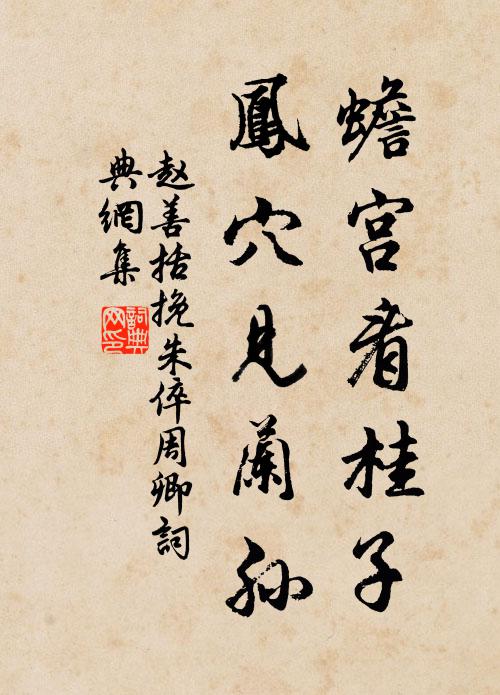 蟾宮看桂子
鳳穴見蘭孫
赵善括挽朱倅周卿詞
典網集
詞典
网印